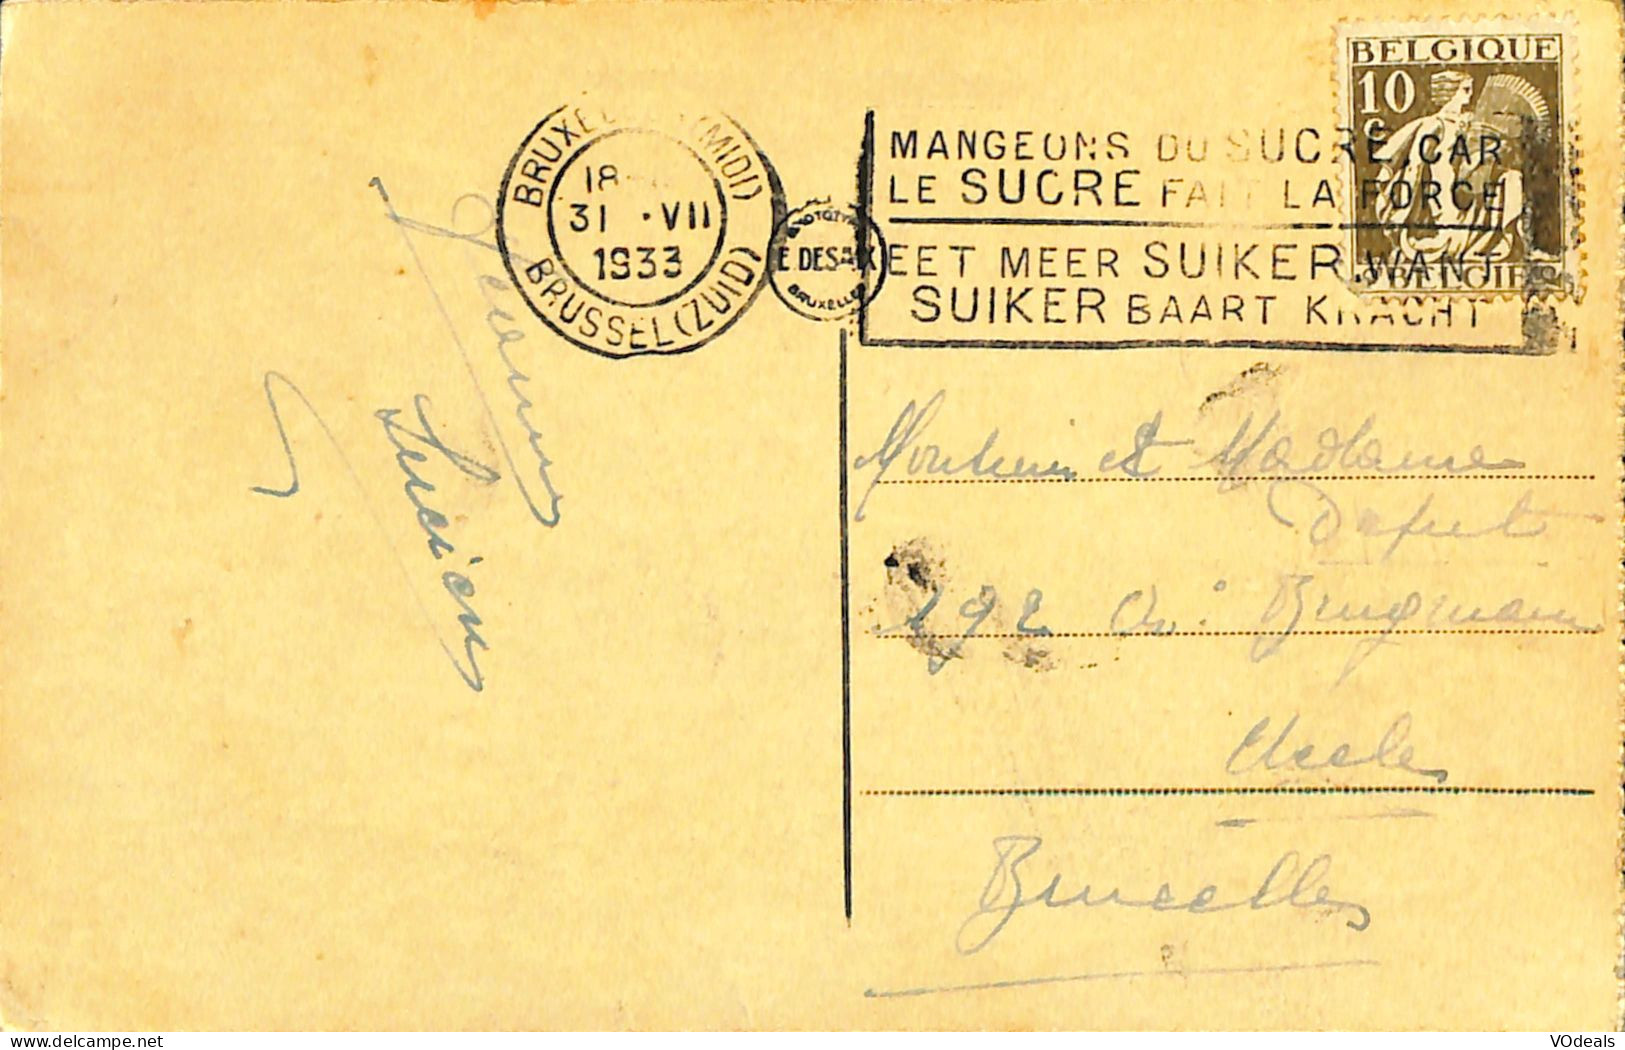 BELGIQUE
10
C
BELGIË
BRUXELLES (MIDI)
18
31 · VII
1933
BRUSSEL (ZUID)
MANGEONS DU SUCRE, CAR
LE SUCRE FAIT LA FORCE
EET MEER SUIKER, WANT
SUIKER BAART KRACHT
E DESAIX
BRUXELLES
Lucien
Monsieur et Madame
292 Av: Brugmann
Uccle
Bruxelles
VOdeals